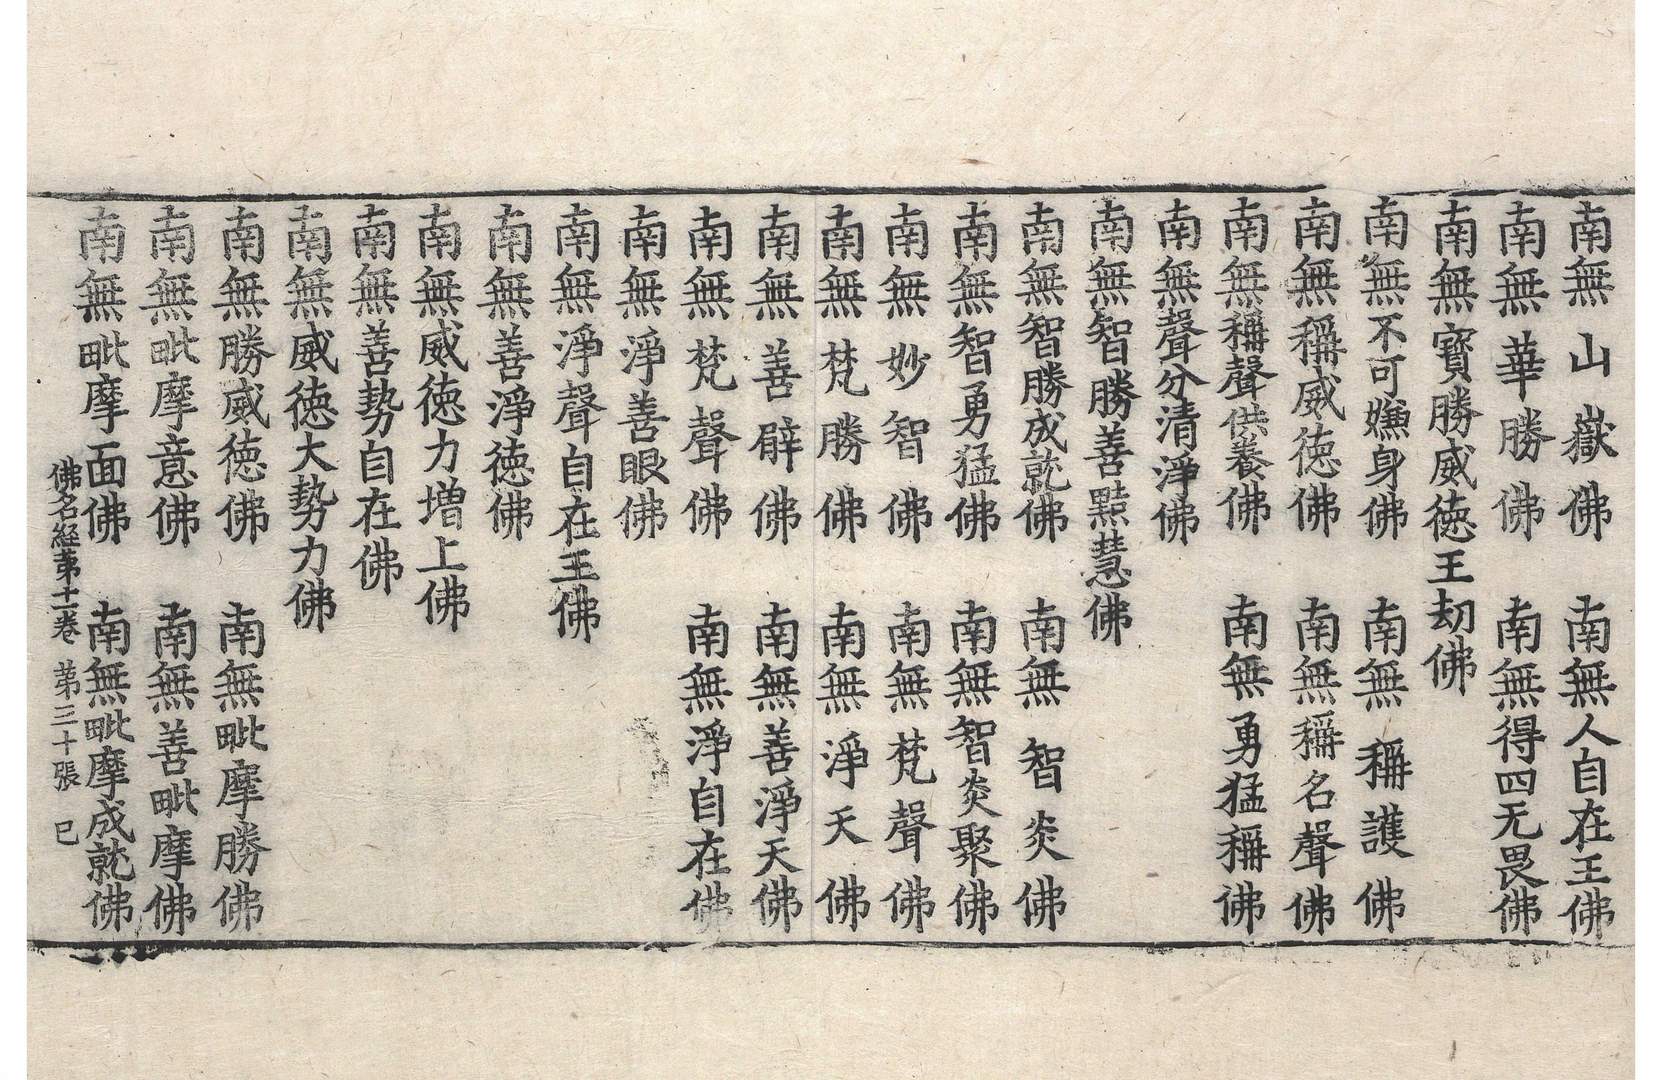 南無山嶽佛　南無人自在王佛
南無華勝佛　南無得四无畏佛
南無寶勝威德王刧佛
南無不可嫌身佛　南無稱護佛
南無稱威德佛　南無稱名聲佛
南無稱聲供養佛　南無勇猛稱佛
南無聲分清淨佛
南無智勝善點慧佛
南無智勝成就佛　南無智炎佛
南無智勇猛佛　南無智炎聚佛
南無妙智佛　南無梵聲佛
南無梵勝佛　南無淨天佛
南無善臂佛　南無善淨天佛
南無梵聲佛　南無淨自在佛
南無淨善眼佛
南無淨聲自在王佛
南無善淨德佛
南無威德力增上佛
南無善勢自在佛
南無威德大勢力佛
南無勝威德佛　南無毗摩勝佛
南無毗摩意佛　南無善毗摩佛
南無毗摩面佛　南無毗摩成就佛
佛名經苐十一卷　苐三十張　巳